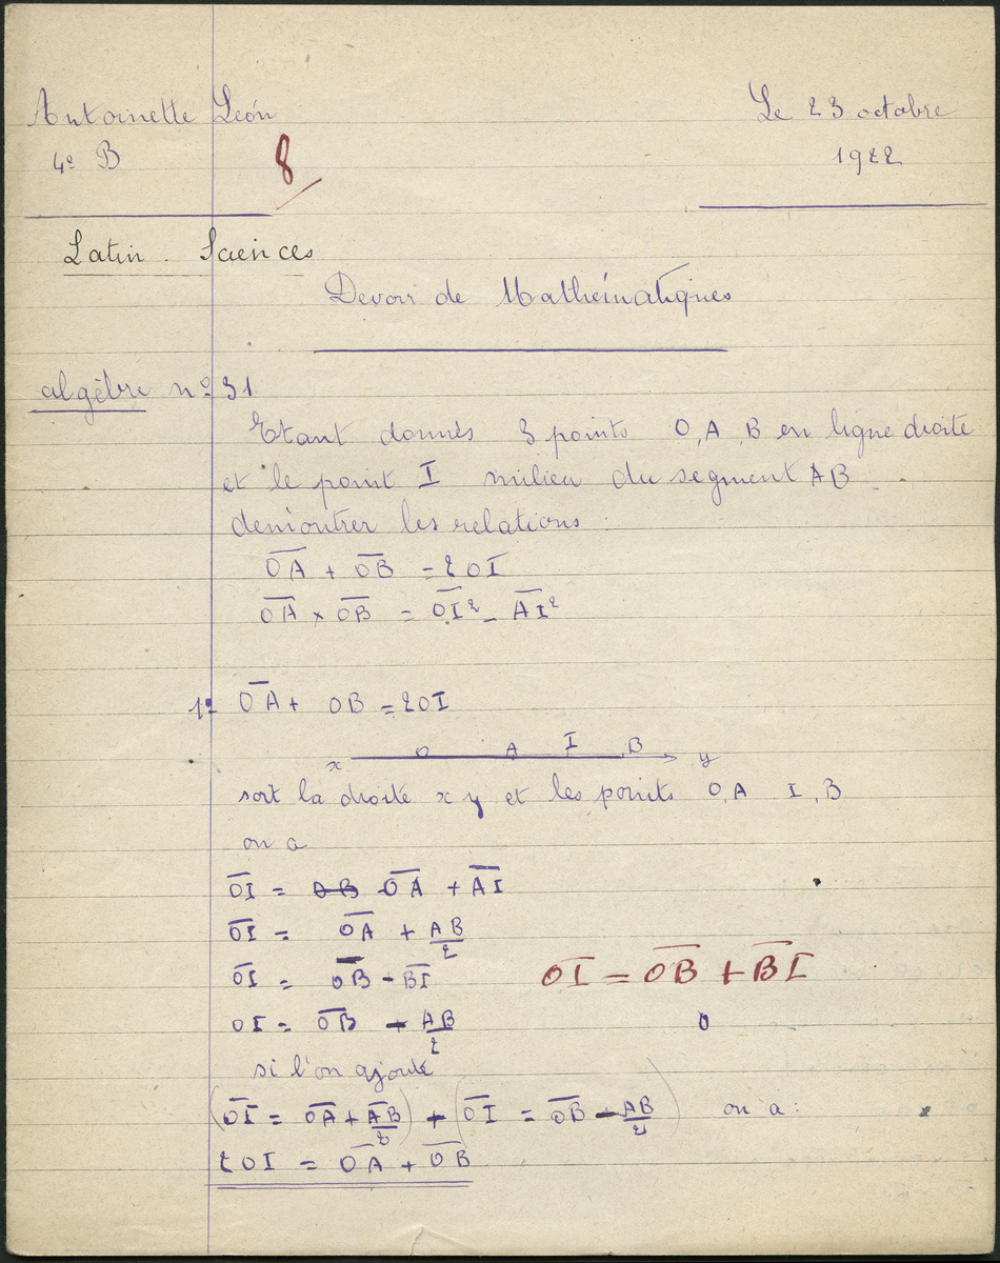 Antoinette León
Le 23 octobre
4e B
8
1922
Latin. Sciences
Devoir de Mathématiques
algèbre no 31
Etant donnés 3 points O, A, B en ligne droite
et le point I milieu du segment AB
demontrer les relations :
O̅A̅ + O̅B̅ = 2 OI̅
O̅A̅ × O̅B̅ = O̅I̅² - A̅I̅²
1o O̅A̅ + OB = 2OI
x O A I B y
soit la droite x y et les points O, A I, B
on a
O̅I̅ = AB O̅A̅ + A̅I̅
O̅I̅ = O̅A̅ + AB/2
O̅I̅ = O̅B̅ - B̅I̅
O̅I̅ = O̅B̅ + B̅I̅
OI = O̅B̅ - AB/2
si l'on ajoute
(O̅I̅ = O̅A̅ + A̅B̅/2) + (O̅I̅ = O̅B̅ - AB/2) on a :
2OI = O̅A̅ + O̅B̅